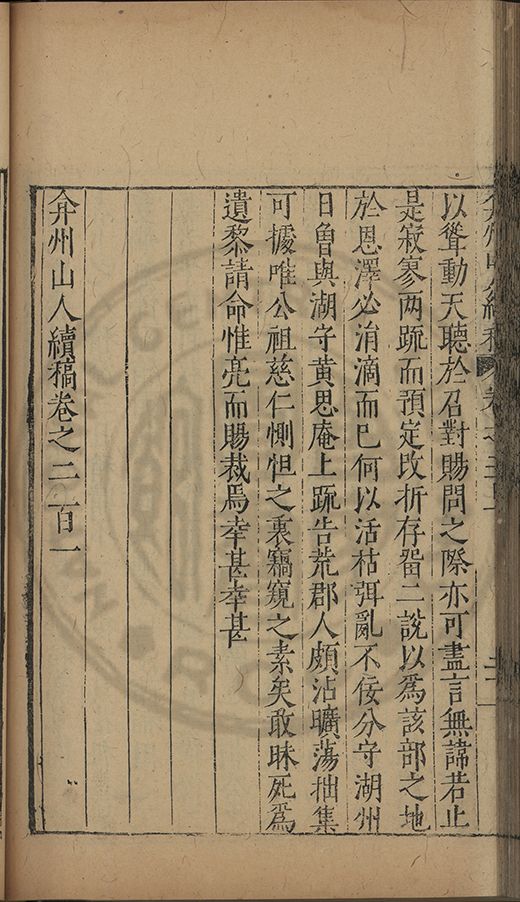 以聳動天聽於召對賜問之際亦可盡言無諱若止
是寂寥两疏而預定改折存畱二說以爲該部之地
於恩澤必涓滴而已何以活枯弭亂不佞分守湖州
日曾與湖守黃思庵上疏告荒郡人頗沾曠蕩拙集
可據唯公祖慈仁惻怛之裏竊窺之素矣敢昧死爲
遺黎請命惟亮而賜裁焉幸甚幸甚
弇州山人續稿卷之二百一